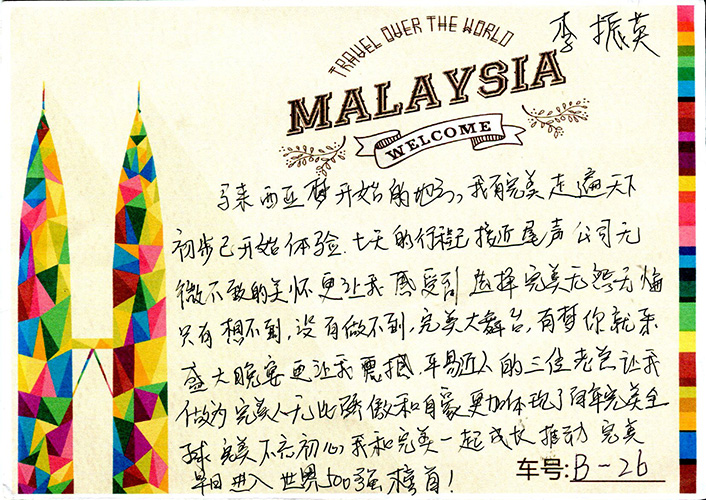 李振英
TRAVEL OVER THE WORLD
MALAYSIA
WELCOME
马来西亚梦开始的地方,我有完美走遍天下
初步已开始体验.七天的行程已接近尾声公司无
微不致的关怀更让我感受到选择完美无怨无悔
只有想不到,没有做不到,完美大舞台,有梦你就来
盛大晚宴更让我震撼.平易近人的三位老总让我
做为完美人无比骄傲和自豪更加体现了百年完美全
球完美不忘初心我和完美一起成长推动完美
早日进入世界500强榜首!
车号:B-26